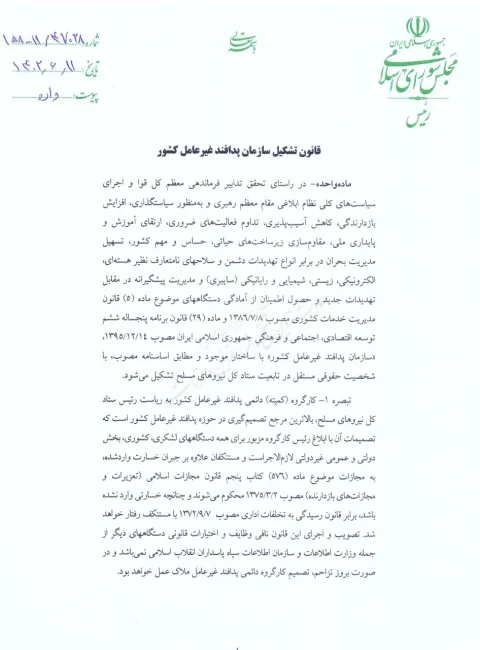 جمهوری اسلامی ایران
مجلس شورای اسلامی
رئیس
باسمه تعالی
شماره ۱۵۸-۱۱/۴۷۰۲۸
تاریخ: ۱۴۰۲,۶,۱۱
پیوست: دارد
قانون تشکیل سازمان پدافند غیرعامل کشور
ماده‌واحده- در راستای تحقق تدابیر فرماندهی معظم کل قوا و اجرای
سیاست‌های کلی نظام ابلاغی مقام معظم رهبری و به‌منظور سیاستگذاری، افزایش
بازدارندگی، کاهش آسیب‌پذیری، تداوم فعالیت‌های ضروری، ارتقای آموزش و
پایداری ملی، مقاوم‌سازی زیرساخت‌های حیاتی، حساس و مهم کشور، تسهیل
مدیریت بحران در برابر انواع تهدیدات دشمن و سلاحهای نامتعارف نظیر هسته‌ای،
الکترونیکی، زیستی، شیمیایی و رایانیکی (سایبری) و مدیریت پیشگیرانه در مقابل
تهدیدات جدید و حصول اطمینان از آمادگی دستگاههای موضوع ماده (۵) قانون
مدیریت خدمات کشوری مصوب ۱۳۸۶/۷/۸ و ماده (۲۹) قانون برنامه پنجساله ششم
توسعه اقتصادی، اجتماعی و فرهنگی جمهوری اسلامی ایران مصوب ۱۳۹۵/۱۲/۱۴،
«سازمان پدافند غیرعامل کشور» با ساختار موجود و مطابق اساسنامه مصوب، با
شخصیت حقوقی مستقل در تابعیت ستاد کل نیروهای مسلح تشکیل می‌شود.
تبصره ۱- کارگروه (کمیته) دائمی پدافند غیرعامل کشور به ریاست رئیس ستاد
کل نیروهای مسلح، بالاترین مرجع تصمیم‌گیری در حوزه پدافند غیرعامل کشور است که
تصمیمات آن با ابلاغ رئیس کارگروه مزبور برای همه دستگاههای لشکری، کشوری، بخش
دولتی و عمومی غیردولتی لازم‌الاجراست و مستنکفان علاوه بر جبران خسارت واردشده،
به مجازات موضوع ماده (۵۷۶) کتاب پنجم قانون مجازات اسلامی (تعزیرات و
مجازات‌های بازدارنده) مصوب ۱۳۷۵/۳/۲ محکوم می‌شوند و چنانچه خسارتی وارد نشده
باشد، برابر قانون رسیدگی به تخلفات اداری مصوب ۱۳۷۲/۹/۷ با مستنکف رفتار خواهد
شد. تصویب و اجرای این قانون نافی وظایف و اختیارات قانونی دستگاههای دیگر از
جمله وزارت اطلاعات و سازمان اطلاعات سپاه پاسداران انقلاب اسلامی نمی‌باشد و در
صورت بروز تزاحم، تصمیم کارگروه دائمی پدافند غیرعامل ملاک عمل خواهد بود.
۱